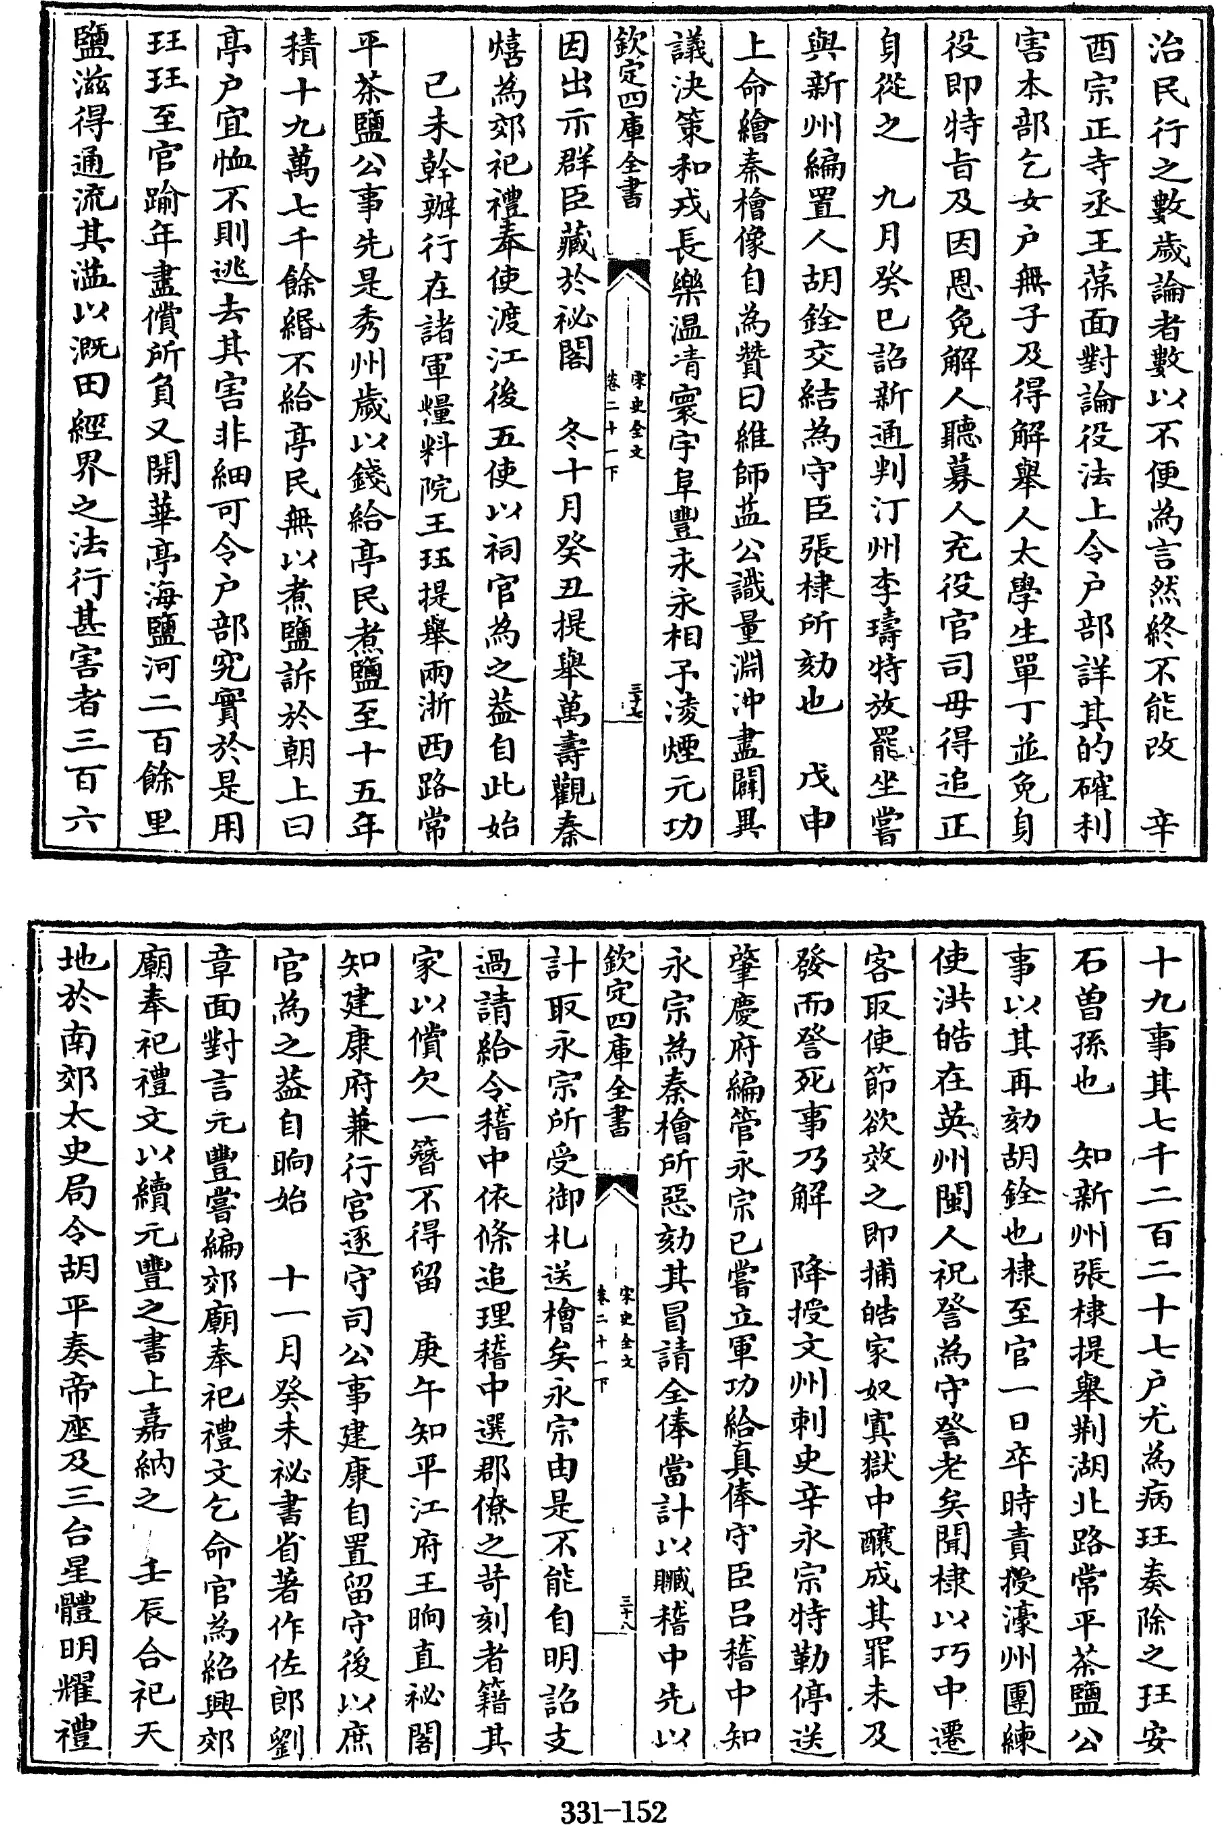 治民行之數歲論者數以不便為言然終不能改　辛
酉宗正寺丞王葆面對論役法上令户部詳其的確利
害本部乞女户無子及得解舉人太學生單丁並免身
役即特旨及因恩免解人聽募人充役官司毋得追正
身從之　九月癸巳詔新通判汀州李璹特放罷坐嘗
與新州編置人胡銓交結為守臣張棣所劾也　戊申
上命繪秦檜像自為贊曰維師益公識量淵沖盡闢異
議決策和戎長樂温凊寰宇阜豐永永相予凌煙元功
欽定四庫全書
宋史全文
卷二十一下
三十七
因出示群臣藏於祕閣　冬十月癸丑提舉萬壽觀秦
熺為郊祀禮奉使渡江後五使以祠官為之葢自此始
己未幹辦行在諸軍糧料院王珏提舉兩浙西路常
平茶鹽公事先是秀州歲以錢給亭民煮鹽至十五年
積十九萬七千餘緡不給亭民無以煮鹽訴於朝上曰
亭户宜恤不則逃去其害非細可令户部究實於是用
珏珏至官踰年盡償所負又開華亭海鹽河二百餘里
鹽滋得通流其滥以溉田經界之法行甚害者三百六
十九事其七千二百二十七户尤為病珏奏除之珏安
石曾孫也　知新州張棣提舉荆湖北路常平茶鹽公
事以其再劾胡銓也棣至官一日卒時責授濠州團練
使洪皓在英州閩人祝詧為守詧老矣聞棣以巧中遷
客取使節欲效之即捕皓家奴寘獄中釀成其罪未及
發而詧死事乃解　降授文州刺史辛永宗特勒停送
肇慶府編管永宗已嘗立軍功給真俸守臣吕稽中知
永宗為秦檜所惡劾其冒請全俸當計以贓稽中先以
欽定四庫全書
宋史全文
卷二十一下
三十八
計取永宗所受御札送檜矣永宗由是不能自明詔支
過請給令稽中依條追理稽中選郡僚之苛刻者籍其
家以償欠一簪不得留　庚午知平江府王晌直祕閣
知建康府兼行宫逐守司公事建康自置留守後以庶
官為之葢自晌始　十一月癸未祕書省著作佐郎劉
章面對言元豐嘗編郊廟奉祀禮文乞命官為紹興郊
廟奉祀禮文以續元豐之書上嘉納之　壬辰合祀天
地於南郊太史局令胡平奏帝座及三台星體明耀禮
331-152